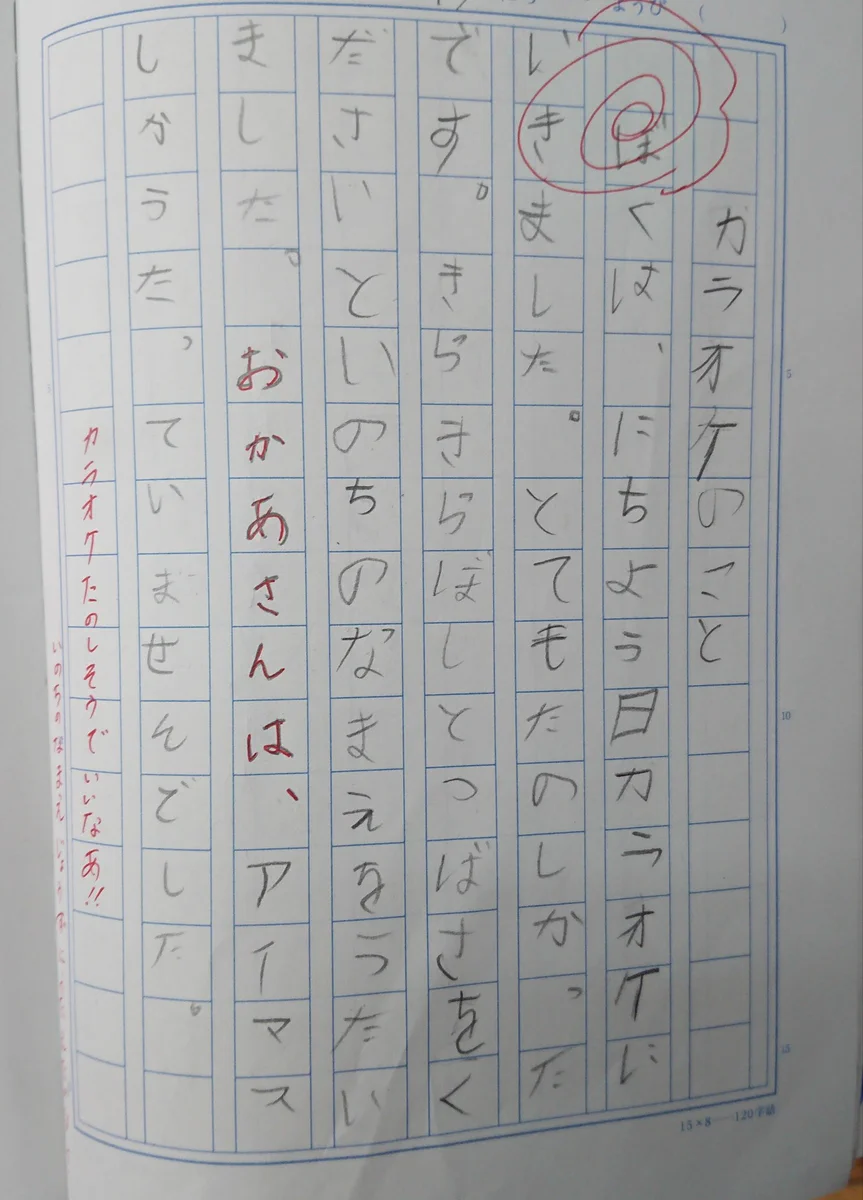 ようび（　　）
カラオケのこと
ぼくは、にちよう日カラオケに
いきました。とてもたのしかった
です。きらきらぼしとつばさをく
ださいといのちのなまえをうたい
ました。おかあさんは、アイマス
しかうたっていませんでした。
カラオケたのしそうでいいなあ!!
15×8　120字詰
5
10
15